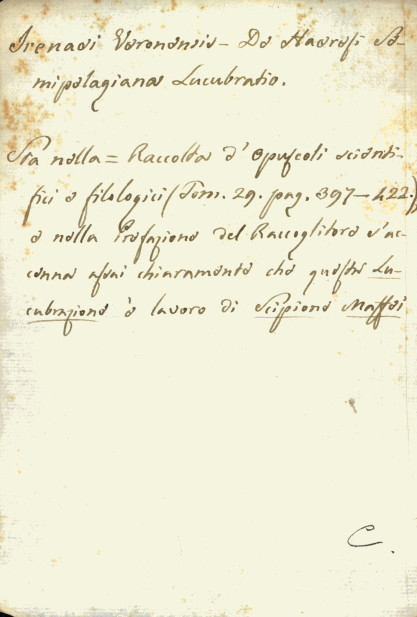 Irenaei Veronensis - De Haeresi Se-
mipelagiana Lucubratio.
Sta nella = Raccolta d'Opuscoli scienti-
fici e filologici (Tom. 29. pag. 397-422.)
e nella Prefazione del Raccoglitore s'ac-
cenna assai chiaramente che questa Lu-
cubrazione è lavoro di Scipione Maffei
C.